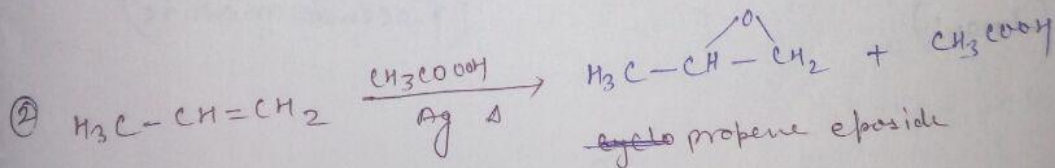 ② H₃C-CH=CH₂ CH₃COOOH → H₃C-CH-CH₂ + CH₃COOH
Ag Δ O
~~cyclo~~ propene eposide